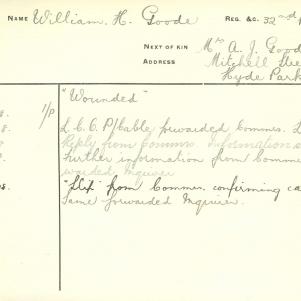 NAME William. H. Goode REG. &C. 32nd
NEXT OF KIN Mrs A. J. Good
ADDRESS Mitchell Stre
Hyde Park
"Wounded"
8. 1/P
8. L.C.O. P/Cable forwarded Commen.
Reply from Commn. Information
Further information from Comme
warded Inquirer
8. from Commen. confirming ca
Same forwarded Inquirer.